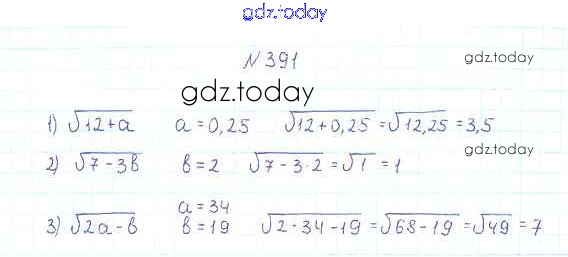 gdz.today
N 391
gdz.today
gdz.today
1) √12+a a = 0,25 √12+0,25 = √12,25 = 3,5
gdz.today
2) √7-3b b = 2 √7-3·2 = √1 = 1
3) √2a-b a = 34 b = 19 √2·34-19 = √68-19 = √49 = 7